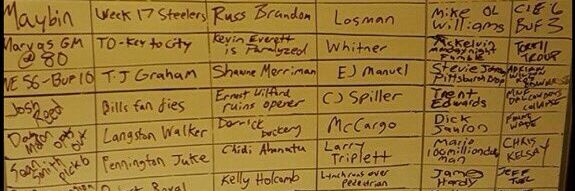 Maybin
Week 17 Steelers
Russ Brandon
Losman
Mike
Williams
CLE 6
BUF 3
Marvas GM
@ 80
TO-Key to City
Kevin Everett
is Paralyzed
Whitner
McKelvin
monday night
fumble
Torell
Troup
NE 56-BUF 10
T.J Graham
Shawne Merriman
EJ Manuel
Stevie
Pittsburgh Drop
Josh
Reed
Bills fan dies
Ernest Wilford
ruins opener
CJ Spiller
Trent
Edwards
MNF
Dal Cowboys
collapse
Langston Walker
Derrick
Dockery
McCargo
Dick
Jauron
Wade
Sean
Smith
Pennington Juke
Chidi
Larry
Triplett
Mario
100million dollar
man
Chris
Kelsay
Kelly Holcomb
Lynch runs over
pedestrian
James
Hardy
Jeff